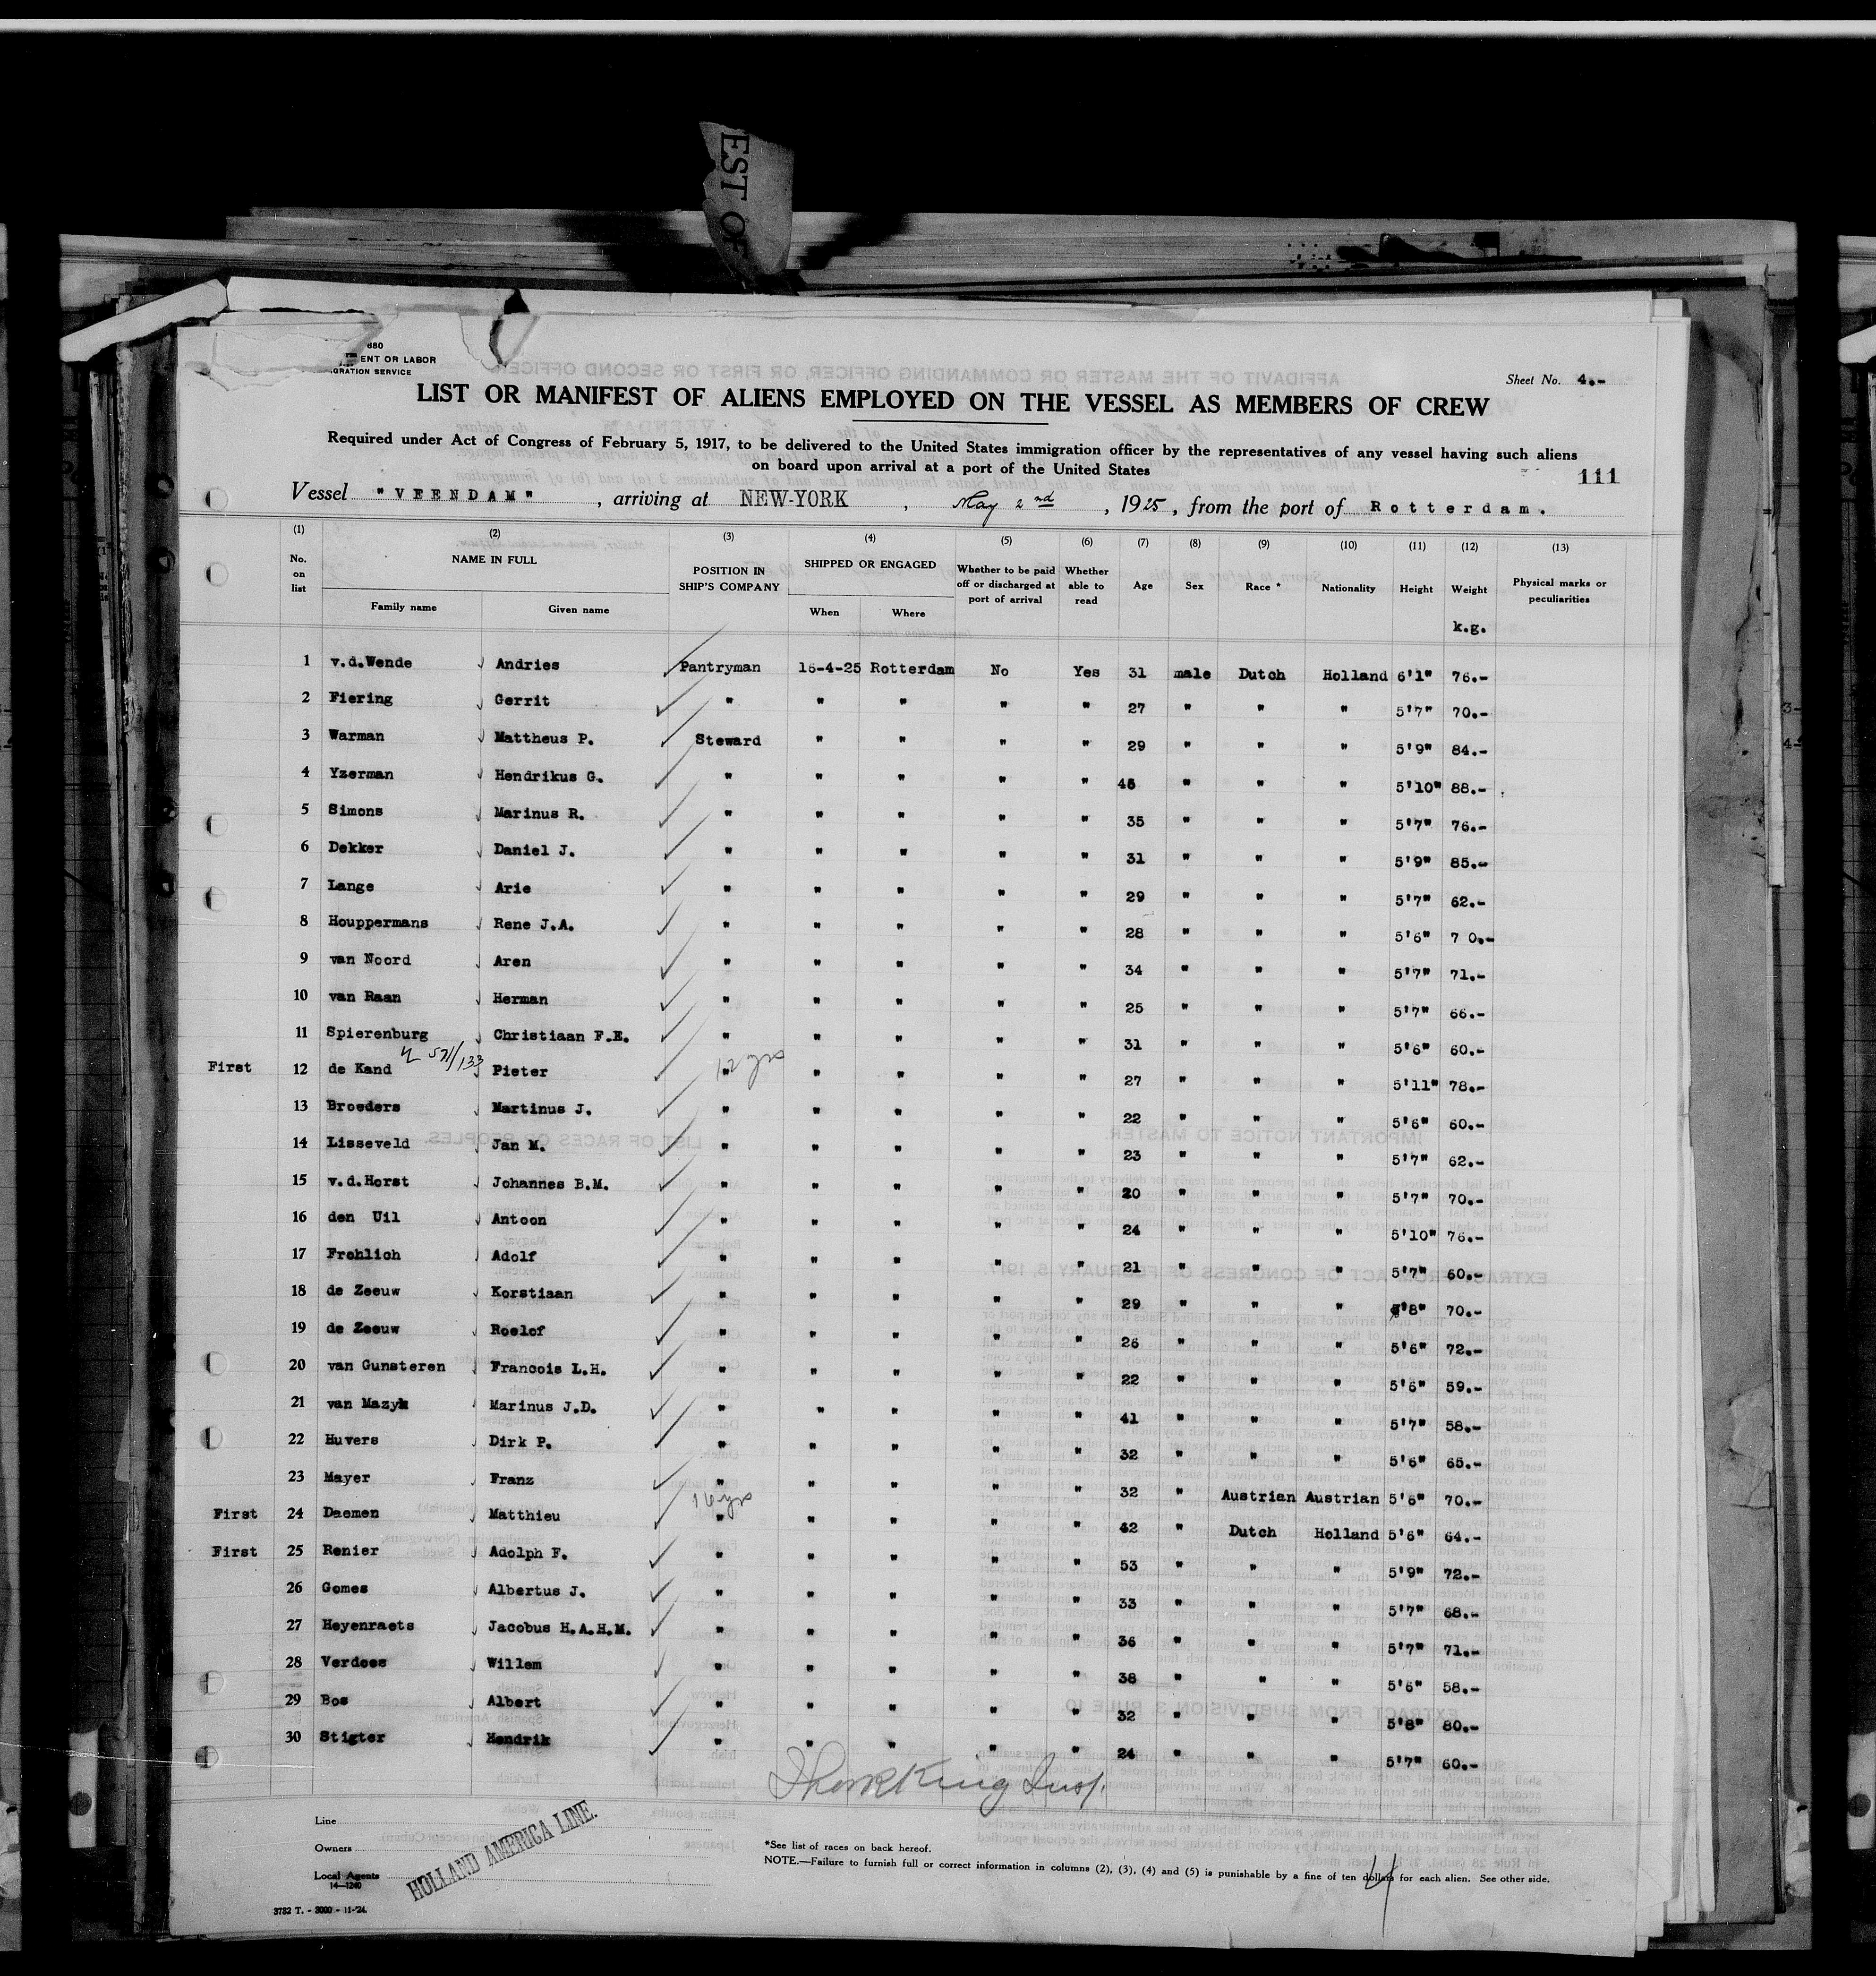 EST OF
680
ENT OR LABOR
GRATION SERVICE
Sheet No. 4.-
LIST OR MANIFEST OF ALIENS EMPLOYED ON THE VESSEL AS MEMBERS OF CREW
Required under Act of Congress of February 5, 1917, to be delivered to the United States immigration officer by the representatives of any vessel having such aliens
on board upon arrival at a port of the United States
111
Vessel "VEENDAM", arriving at NEW-YORK, May 2nd, 1925, from the port of Rotterdam.
(1) (2) (3) (4) (5) (6) (7) (8) (9) (10) (11) (12) (13)
No. on list NAME IN FULL POSITION IN SHIP'S COMPANY SHIPPED OR ENGAGED Whether to be paid off or discharged at port of arrival Whether able to read Age Sex Race * Nationality Height Weight Physical marks or peculiarities
Family name Given name When Where k.g.
1 v.d.Wende Andries Pantryman 15-4-25 Rotterdam No Yes 31 male Dutch Holland 6'1" 76.-
2 Fiering Gerrit " " " " " 27 " " " 5'7" 70.-
3 Warman Mattheus P. Steward " " " " 29 " " " 5'9" 84.-
4 Yzerman Hendrikus G. " " " " " 45 " " " 5'10" 88.-
5 Simons Marinus R. " " " " " 35 " " " 5'7" 76.-
6 Dekker Daniel J. " " " " " 31 " " " 5'9" 85.-
7 Lange Arie " " " " " 29 " " " 5'7" 62.-
8 Houppermans Rene J.A. " " " " " 28 " " " 5'6" 7 0.-
9 van Noord Aren " " " " " 34 " " " 5'7" 71.-
10 van Raan Herman " " " " " 25 " " " 5'7" 66.-
11 Spierenburg Christiaan F.E. " " " " " 31 " " " 5'6" 60.-
571/133 12 yrs
First 12 de Kand Pieter " " " " " 27 " " " 5'11" 78.-
13 Broeders Martinus J. " " " " " 22 " " " 5'6" 60.-
14 Lisseveld Jan M. " " " " " 23 " " " 5'7" 62.-
15 v.d.Horst Johannes B.M. " " " " " 20 " " " 5'7" 70.-
16 den Uil Antoon " " " " " 24 " " " 5'10" 76.-
17 Frohlich Adolf " " " " " 21 " " " 5'7" 60.-
18 de Zeeuw Korstiaan " " " " " 29 " " " 5'8" 70.-
19 de Zeeuw Roelof " " " " " 26 " " " 5'6" 72.-
20 van Gunsteren Francois L.H. " " " " " 22 " " " 5'6" 59.-
21 van Mazyk Marinus J.D. " " " " " 41 " " " 5'7" 58.-
22 Huvers Dirk P. " " " " " 32 " " " 5'6" 65.-
23 Mayer Franz " " " " " 32 " Austrian Austrian 5'6" 70.-
First 24 Daemen Matthieu " " " " " 42 " Dutch Holland 5'6" 64.-
First 25 Renier Adolph F. " " " " " 53 " " " 5'9" 72.-
26 Gomes Albertus J. " " " " " 33 " " " 5'7" 68.-
27 Heyenraets Jacobus H.A.H.M. " " " " " 36 " " " 5'7" 71.-
28 Verdoes Willem " " " " " 38 " " " 5'6" 58.-
29 Bos Albert " " " " " 32 " " " 5'8" 80.-
30 Stigter Hendrik " " " " " 24 " " " 5'7" 60.-
Line
Owners
Local Agents
HOLLAND AMERICA LINE.
14—1240
3732 T. - 3000 - 11-'24.
*See list of races on back hereof.
NOTE.—Failure to furnish full or correct information in columns (2), (3), (4) and (5) is punishable by a fine of ten dollars for each alien. See other side.